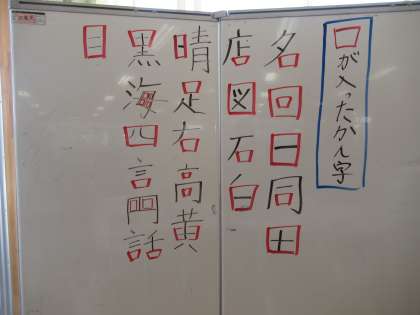 口が入ったかん字
名回日同田
店図石白
晴足右高黄
黒海四言門話
目